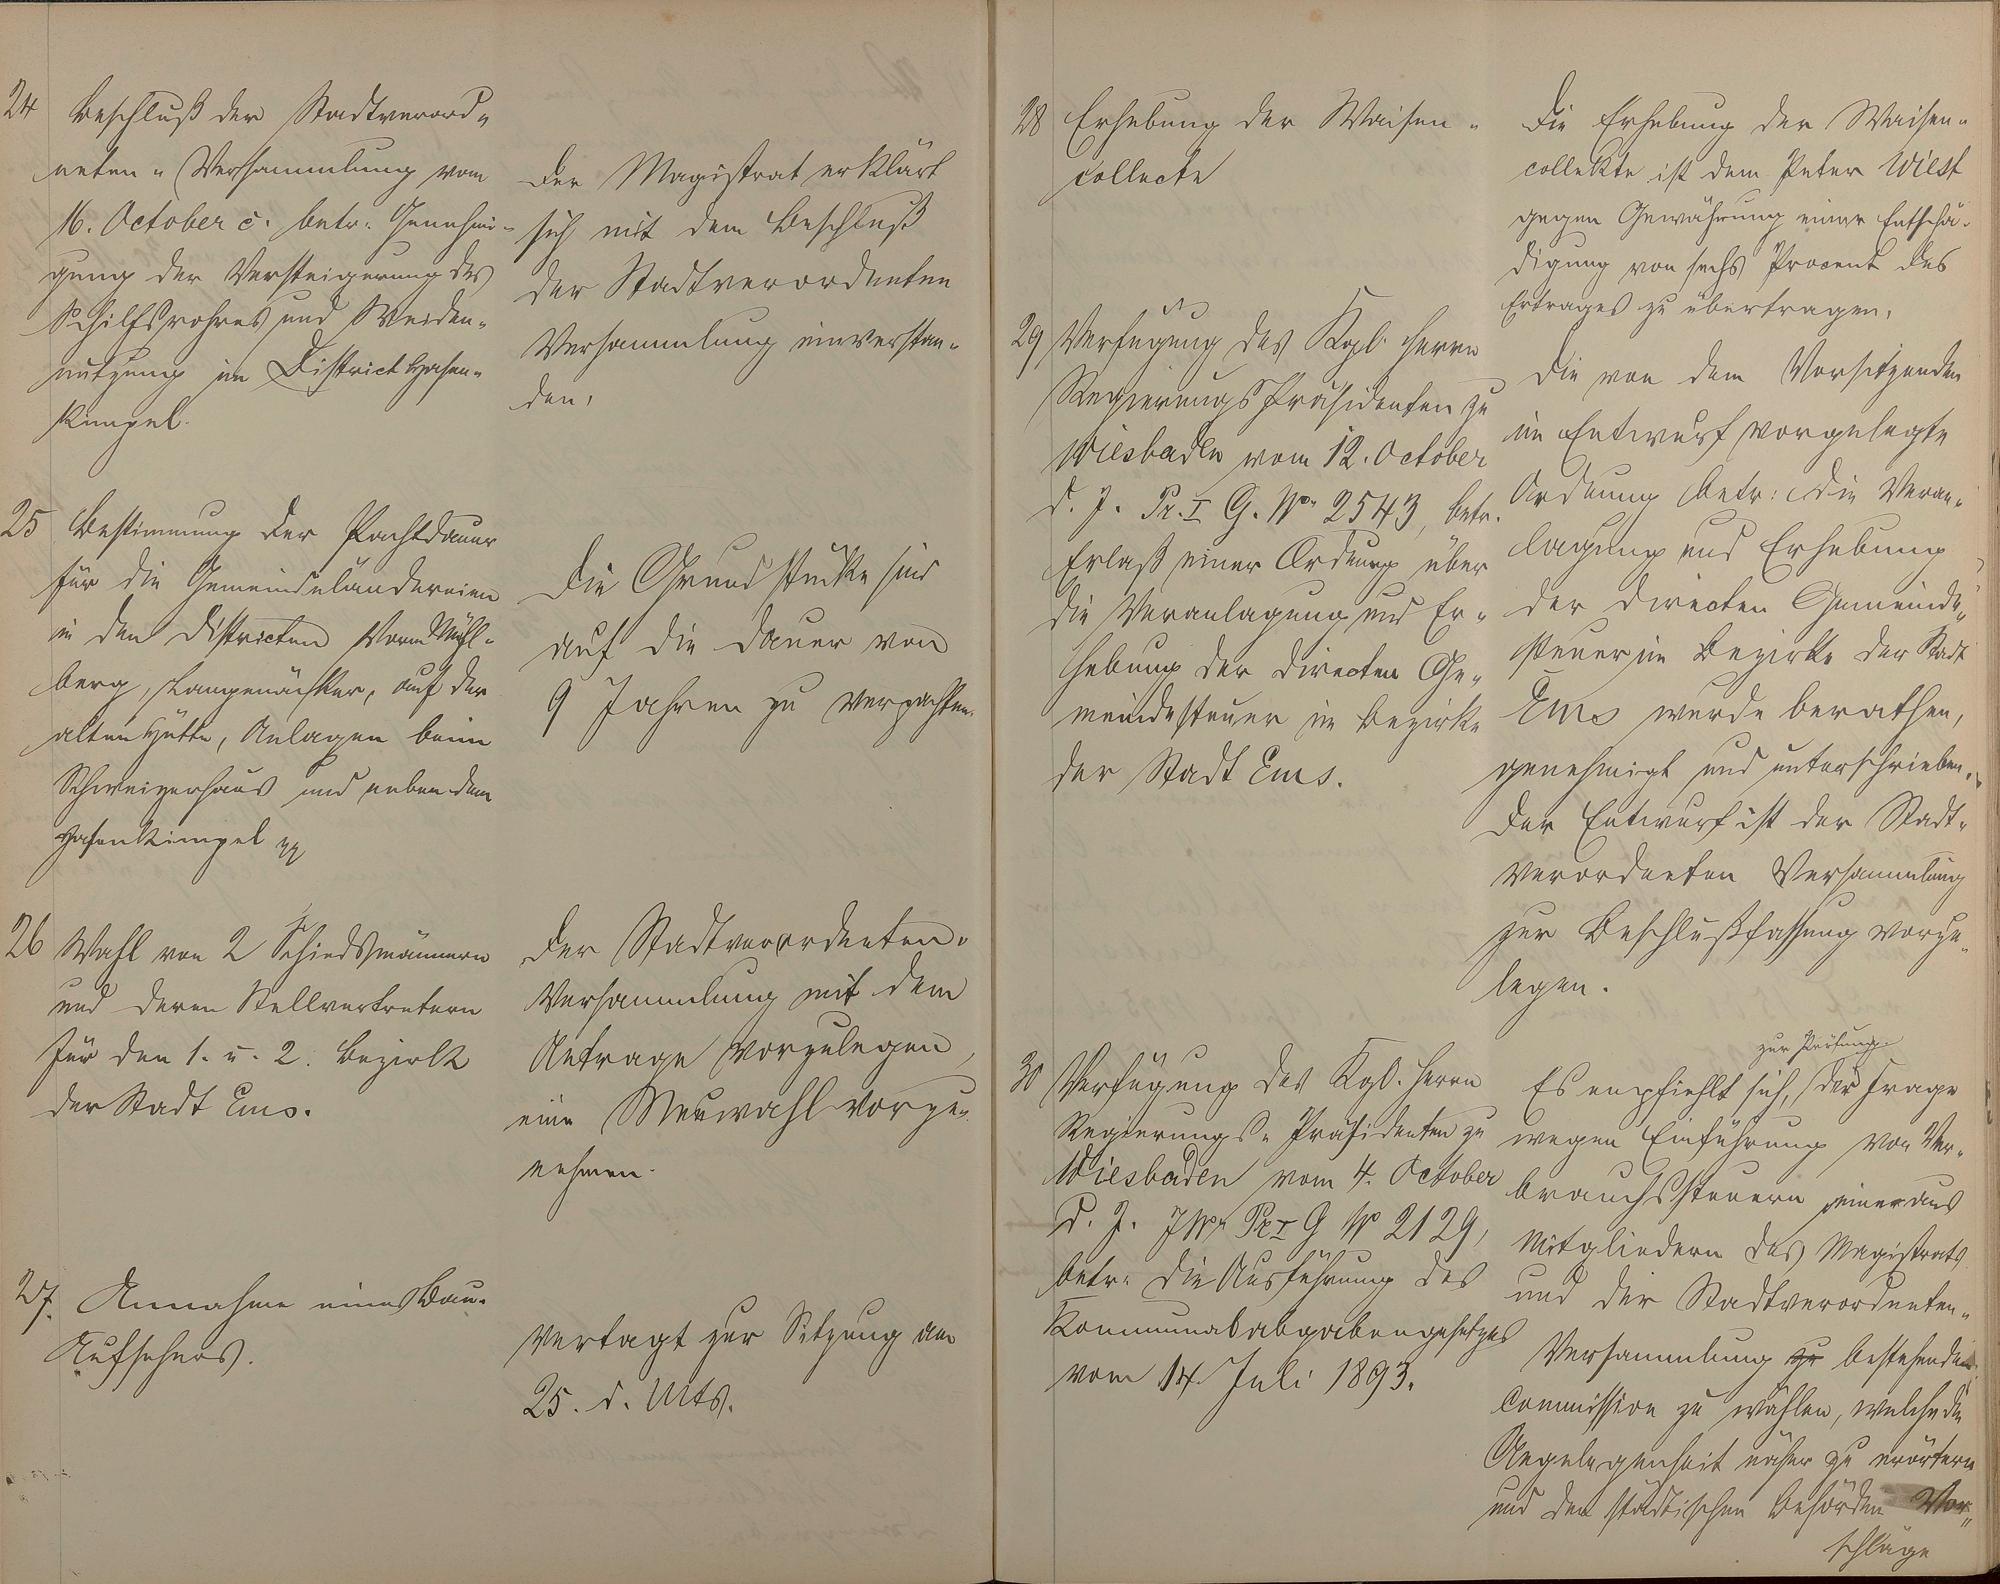 24 Beschluß der Stadtverord-
neten-Versammlung vom
16. October c. betr. Genehmi-
gung der Versteigerung des
Schilfrohres und Weiden-
nutzung im District Hasen-
kümpel.
Der Magistrat erklärt
sich mit dem Beschluß
der Stadtverordneten
Versammlung einverstan-
den.
25 Bestimmung der Pachtdauer
für die Gemeindeländereien
in den Districten Vorm Mühl-
berg, Langenäcker, auf der
alten Hütte, Anlagen beim
Schweizerhaus und neben dem
Hasenkümpel
Die Grundstücke sind
auf die Dauer von
9 Jahren zu verpachten.
26 Wahl von 2 Schiedsmännern
und deren Stellvertretern
für den 1. u. 2. Bezirk
der Stadt Ems.
Der Stadtverordneten-
Versammlung mit dem
Antrage vorzulegen,
eine Neuwahl vorzu-
nehmen.
27. Annahme eines Bau-
Aufsehers.
Vertagt zur Sitzung am
25. d. Mts.
28 Erhebung der Waisen-
collecte
Die Erhebung der Waisen-
collekte ist dem Peter Wiest
gegen Gewährung einer Entschä-
digung von sechs Procent des
Ertrages zu übertragen.
29 Verfügung des Kgl. Herrn
Regierungspräsidenten zu
Wiesbaden vom 12. October
d. J. Pr. I G. No 2543, betr.
Erlaß einer Ordnung über
die Veranlagung und Er-
hebung der directen Ge-
meindesteuer im Bezirke
der Stadt Ems.
Die von dem Vorsitzenden
im Entwurf vorgelegte
Ordnung betr: die Veran-
lagung und Erhebung
der directen Gemeinde-
steuer im Bezirke der Stadt
Ems wurde berathen,
genehmigt und unterschrieben.
Der Entwurf ist der Stadt-
verordneten Versammlung
zur Beschlußfassung vorzu-
legen.
30 Verfügung des Kgl. Herrn
Regierungs-Präsidenten zu
Wiesbaden vom 4. October
d. J. Pr I G No 2129,
betr. die Ausführung des
Kommunalabgabengesetzes
vom 14. Juli 1893.
zur Prüfung
Es empfiehlt sich, der Frage
wegen Einführung von Ver-
brauchssteuern einer aus
Mitgliedern des Magistrats
und der Stadtverordneten-
Versammlung zu bestehenden
Commission zu wählen, welche die
Angelegenheit näher zu erörtern
und den städtischen Behörden Vor-
schläge